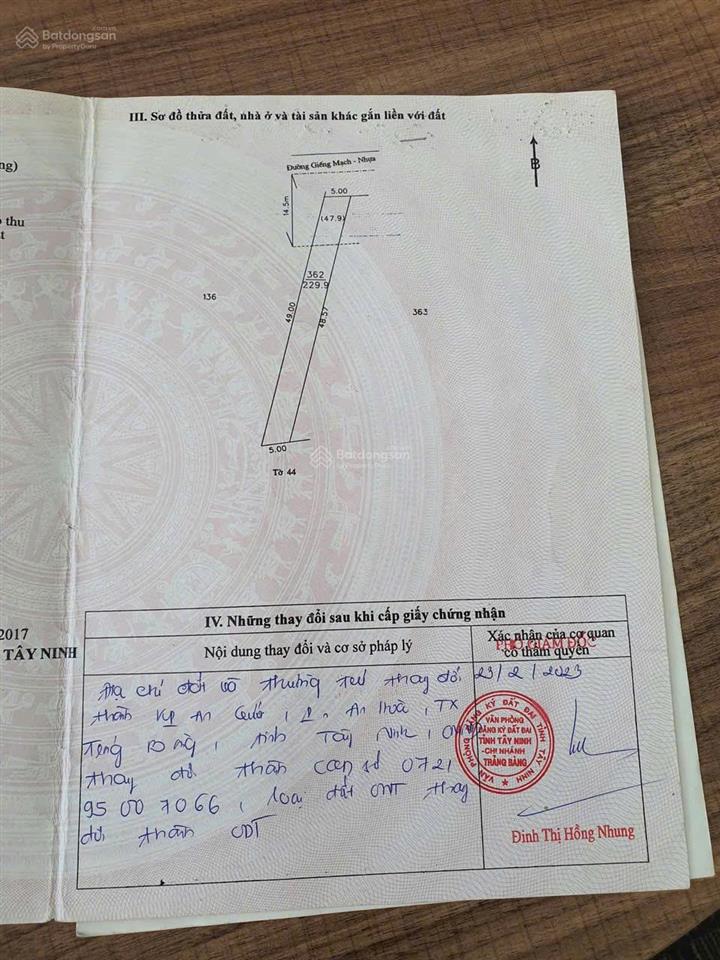 Batdongsan
by PropertyGuru
III. Sơ đồ thửa đất, nhà ở và tài sản khác gắn liền với đất
ng)
thu
t
Đường Giếng Mạch - Nhựa
B
14.5m
5.00
(47.9)
362
229.9
136
49.00
48.57
363
5.00
Tờ 44
Batdongsan
by PropertyGuru
2017
TÂY NINH
IV. Những thay đổi sau khi cấp giấy chứng nhận
Nội dung thay đổi và cơ sở pháp lý
Xác nhận của cơ quan
có thẩm quyền
PHÓ GIÁM ĐỐC
Địa chỉ thường trú thay đổi
23/2/2023
thành KP An , TX
, tỉnh Tây Ninh,
thay đổi thành căn số 0721
95 00 7066, loại đất ONT thay
đổi thành ODT
VĂN PHÒNG ĐĂNG KÝ ĐẤT ĐAI TỈNH TÂY NINH
VĂN PHÒNG
ĐĂNG KÝ ĐẤT ĐAI
TỈNH TÂY NINH
-CHI NHÁNH
TRẢNG BÀNG
Đinh Thị Hồng Nhung